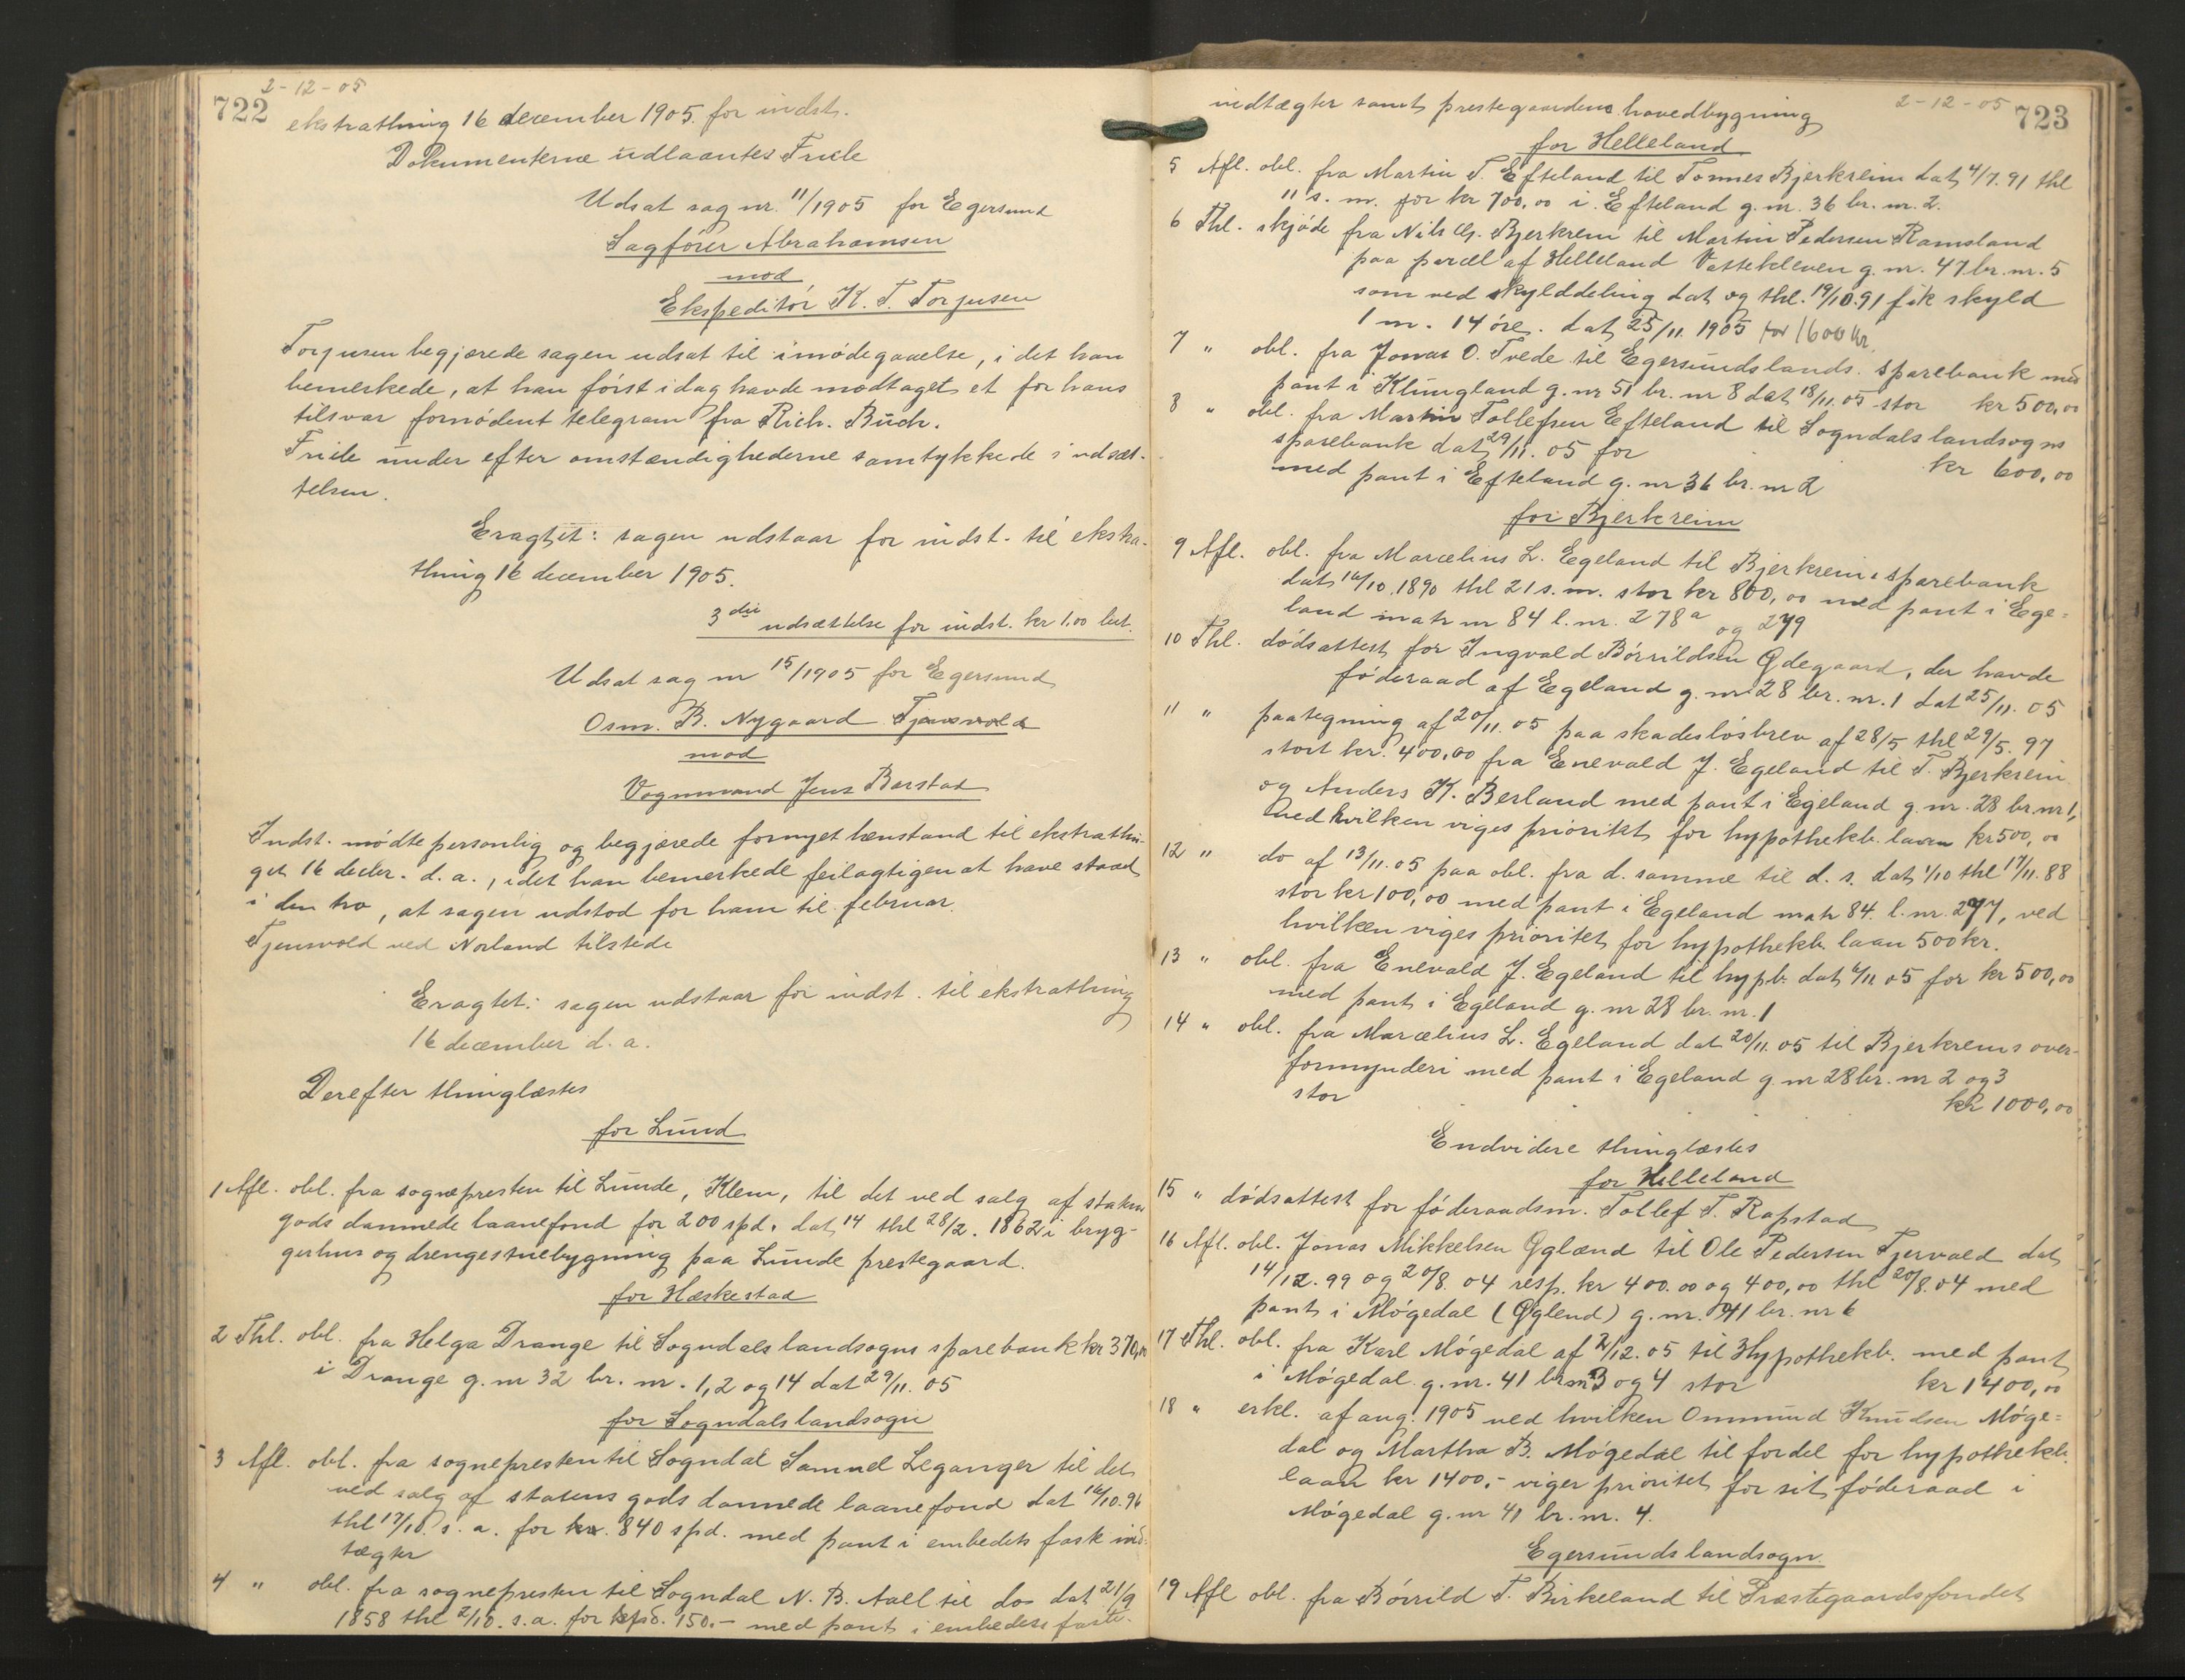 2-12-05
722
ekstrathing 16 december 1905 for indst.
Dokumenterne udlaantes Friele
Udsat sag nr. 11/1905 for Egersund
Sagfører Abrahamsen
mod
Ekspeditør K. T. Torjusen
Torjusen begjærede sagen udsat til imødegaaelse, i det han
bemerkede, at han først idag havde modtaget et for hans
tilsvar fornødent telegram fra Rich. Buch.
Friele under efter omstændighederne samtykkede i udsæt-
telsen.
Eragtet: sagen udstaar for indst. til ekstra-
thing 16 december 1905.
3die udsættelse for indst. kr 1.00 bet.
Udsat sag nr 15/1905 for Egersund
Osm. B. Nygaard Tjensvold
mod
Vognmand Jens Barstad
Indst. mødte personlig og begjærede fornyet henstand til ekstrathin-
get 16 decbr. d. a., idet han bemerkede feilagtigen at have staaet
i den tro, at sagen udstod for ham til februar.
Tjensvold ved Norland tilstede
Eragtet: sagen udstaar for indst. til ekstrathing
16 december d. a.
Derefter thinglæstes
for Lund
1 Afl. obl. fra sognepresten til Lunde, Klem, til det ved salg af statens
gods dannede laanefond for 200 spd. dat 14 thl 28/2. 1862 i bryg-
gerhus og drengestuebygning paa Lunde prestegaard.
for Heskestad
2 Thl. obl. fra Helga Drange til Sogndals landsogns sparebank kr 370,00
i Drange g. nr 32 br. nr. 1, 2 og 14 dat 29/11. 05
for Sogndals landsogn
3 Afl. obl. fra sognepresten til Sogndal Samuel Leganger til det
ved salg af statens gods dannede laanefond dat 16/10. 96
thl 17/10. s. a. for kr. 840 spd. med pant i embedets fask ind-
tægter
4 " obl. fra sognepresten til Sogndal N. B. Aall til do dat 21/9
1858 thl 2/10. s. a. for spd. 150.- med pant i embedets faste
2-12-05
723
indtægter samt prestegaardens hovedbygning
for Helleland
5 Afl. obl. fra Martin T. Efteland til Tønnes Bjerkreim dat 4/7. 91 thl
11 s. m. for kr 700,00 i Efteland g. nr. 36 br. nr. 2.
6 Thl. skjøde fra Nils Bjerkrem til Martin Pedersen Ramsland
paa parcel af Helleland Vattekleven g. nr. 47 br. nr. 5
som ved skylddeling dat og thl. 19/10. 91 fik skyld
1 m. 14 øre. dat 25/11. 1905 for 1600 kr.
7 " obl. fra Jonas O. Tvede til Egersunds lands. sparebank med
pant i Klungland g. nr 51 br. nr 8 dat 18/11. 05 stor kr 500,00
8 " obl. fra Martin Tollefsen Efteland til Sogndals landsogns
sparebank dat 29/11. 05 for kr 600,00
med pant i Efteland g. nr 36 br. nr 2
for Bjerkreim
9 Afl. obl. fra Marcelius L. Egeland til Bjerkreims sparebank
dat 16/10. 1890 thl 21 s. m. stor kr 800,00 med pant i Ege-
land matr nr 84 l. nr. 278a og 279
10 Thl. dødsattest for Ingvald Børrildsen Ødegaard, der havde
føderaad af Egeland g. nr 28 br. nr. 1 dat 25/11. 05
11 " paategning af 20/11. 05 paa skadesløsbrev af 28/5 thl 29/5. 97
stort kr. 400,00 fra Enevald J. Egeland til T. Bjerkreim
og Anders K. Berland med pant i Egeland g. nr. 28 br. nr 1,
ved hvilken viges prioritet for hypothekb. laan kr 500,00
12 " do af 13/11. 05 paa obl. fra d. samme til d. s. dat 1/10 thl 17/11. 88
stor kr 100,00 med pant i Egeland matr 84. l. nr. 277, ved
hvilken viges prioritet for hypothekb. laan 500 kr.
13 " obl. fra Enevald J. Egeland til hypb. dat 6/11 05 for kr 500,00
med pant i Egeland g. nr 28 br. nr. 1
14 " obl. fra Marcelius L. Egeland dat 20/11. 05 til Bjerkrems over-
formynderi med pant i Egeland g. nr 28 br. nr 2 og 3
stor kr 1000,00
Endvidere thinglæstes
for Helleland
15 " dødsattest for føderaadsm. Tollef T. Rapstad
16 Afl. obl. Jonas Mikkelsen Øglænd til Ole Pedersen Tjervald dat
14/12. 99 og 20/8. 04 resp. kr 400.00 og 400,00 thl 20/8. 04 med
pant i Møgedal (Øglend) g. nr. 41 br. nr 6
17 Thl. obl. fra Karl Møgedal af 2/12. 05 til Hypothekb. med pant
i Møgedal g. nr. 41 br. nr 3 og 4 stor kr 1400,00
18 " erkl. af aug. 1905 ved hvilken Ommund Knudsen Møge-
dal og Martha B. Møgedal til fordel for hypothekb.
laan kr 1400.- viger prioritet for sit føderaad i
Møgedal g. nr 41 br. nr. 4.
Egersunds landsogn
19 Afl obl. fra Børrild T. Birkeland til Præstegaardsfondet